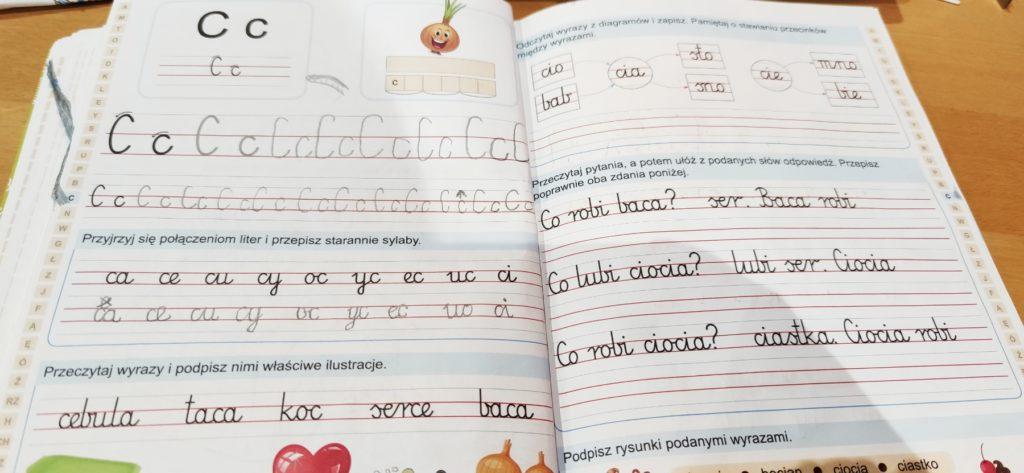 C c
C c
c
C c C c C c C c C c C c C c C
C c C c C c C c C c C c C c C c C c C c C c
Przyjrzyj się połączeniom liter i przepisz starannie sylaby.
ca ce cu cy oc yc ec uc ci
ca ce cu cy oc yc ec uc ci
Przeczytaj wyrazy i podpisz nimi właściwe ilustracje.
cebula taca koc serce baca
Odczytaj wyrazy z diagramów i zapisz. Pamiętaj o stawianiu przecinków
między wyrazami.
cio
bab
cia
sto
sno
cie
mno
bie
Przeczytaj pytania, a potem ułóż z podanych słów odpowiedź. Przepisz
poprawnie oba zdania poniżej.
Co robi baca? ser. Baca robi
Co lubi ciocia? lubi ser. Ciocia
Co robi ciocia? ciastka. Ciocia robi
Podpisz rysunki podanymi wyrazami.
bocian • ciocia • ciastko